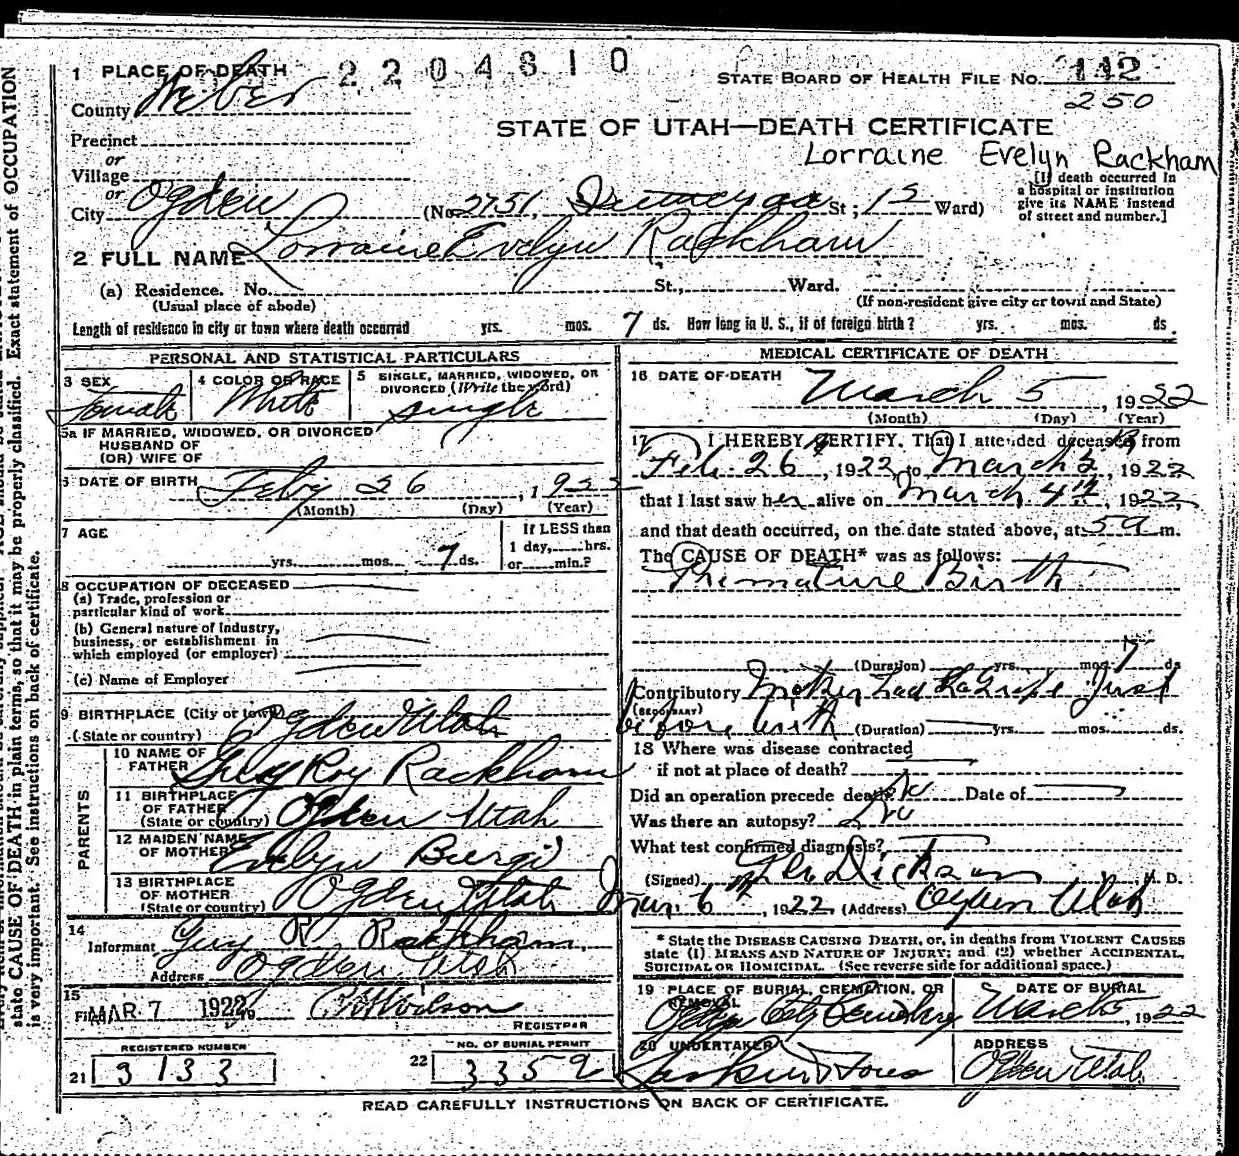 1 PLACE OF DEATH 2204810
STATE BOARD OF HEALTH FILE NO. 142
County Weber 250
Precinct
STATE OF UTAH—DEATH CERTIFICATE
or
Lorraine Evelyn Rackham
Village
or
City Ogden (No 2751, St; Ward)
[If death occurred in
a hospital or institution
give its NAME instead
of street and number.]
2 FULL NAME Lorraine Evelyn Rackham
(a) Residence. No. St., Ward.
(Usual place of abode) (If non-resident give city or town and State)
Length of residence in city or town where death occurred yrs. mos. 7 ds. How long in U. S., if of foreign birth? yrs. mos. ds.
PERSONAL AND STATISTICAL PARTICULARS
3 SEX 4 COLOR OR RACE 5 SINGLE, MARRIED, WIDOWED, OR
DIVORCED (Write the word)
Female White single
5a IF MARRIED, WIDOWED, OR DIVORCED
HUSBAND OF
(OR) WIFE OF
6 DATE OF BIRTH Feby 26, 1922
(Month) (Day) (Year)
7 AGE If LESS than
1 day, hrs.
yrs. mos. 7 ds. or min.?
8 OCCUPATION OF DECEASED
(a) Trade, profession or
particular kind of work
(b) General nature of Industry,
business, or establishment in
which employed (or employer)
(c) Name of Employer
9 BIRTHPLACE (City or town)
(State or country) Ogden Utah
PARENTS
10 NAME OF
FATHER Guy Roy Rackham
11 BIRTHPLACE
OF FATHER
(State or country) Ogden Utah
12 MAIDEN NAME
OF MOTHER Evelyn Burgi
13 BIRTHPLACE
OF MOTHER
(State or country) Ogden Utah
14
Informant Guy R. Rackham
Address Ogden Utah
15
Filed MAR 7 1922 Wilson
REGISTRAR
REGISTERED NUMBER NO. OF BURIAL PERMIT
21 3133 22 3359
MEDICAL CERTIFICATE OF DEATH
16 DATE OF DEATH
March 5, 1922
(Month) (Day) (Year)
17 I HEREBY CERTIFY, That I attended deceased from
Feb. 26, 1922 to March 5, 1922
that I last saw her alive on March 4th, 1922,
and that death occurred, on the date stated above, at 5 a m.
The CAUSE OF DEATH* was as follows:
Premature Birth
(Duration) yrs. mos. 7 ds
Contributory Mother had LaGrippe Just
(SECONDARY)
before birth (Duration) yrs. mos. ds.
18 Where was disease contracted
if not at place of death?
Did an operation precede death? No Date of
Was there an autopsy? No
What test confirmed diagnosis?
(Signed) Dickson M. D.
Mar. 6th, 1922 (Address) Ogden Utah
* State the DISEASE CAUSING DEATH, or, in deaths from VIOLENT CAUSES
state (1) MEANS AND NATURE OF INJURY; and (2) whether ACCIDENTAL,
SUICIDAL OR HOMICIDAL. (See reverse side for additional space.)
19 PLACE OF BURIAL, CREMATION, OR
REMOVAL
DATE OF BURIAL
Ogden City Cemetery March 5, 1922
20 UNDERTAKER ADDRESS
Larkin & Sons Ogden Utah
READ CAREFULLY INSTRUCTIONS ON BACK OF CERTIFICATE.
state CAUSE OF DEATH in plain terms, so that it may be properly classified. Exact statement of OCCUPATION
is very important. See instructions on back of certificate.